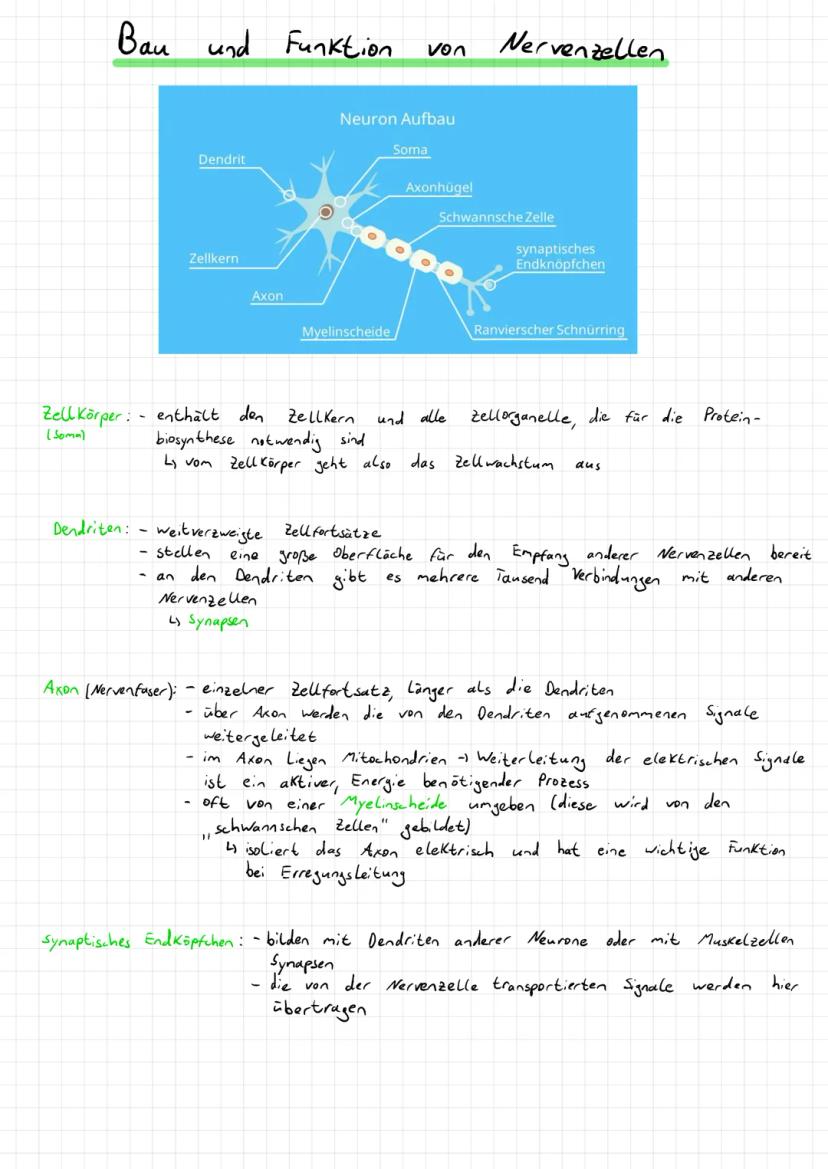 Bau und Funktion von Nervenzellen
Neuron Aufbau
Dendrit
Soma
Axonhügel
Schwannsche Zelle
synaptisches
Endknöpfchen
Zellkern
Axon
Myelinscheide
Ranvierscher Schnürring
Zellkörper: - enthält den Zellkern und alle Zellorganelle, die für die Protein-
(Soma) biosynthese notwendig sind
↳ vom Zellkörper geht also das Zellwachstum aus
Dendriten: - weitverzweigte Zellfortsätze
- stellen eine große Oberfläche für den Empfang anderer Nervenzellen bereit
- an den Dendriten gibt es mehrere Tausend Verbindungen mit anderen
Nervenzellen
↳ Synapsen
Axon (Nervenfaser): - einzelner Zellfortsatz, länger als die Dendriten
- über Axon werden die von den Dendriten aufgenommenen Signale
weitergeleitet
- im Axon liegen Mitochondrien → Weiterleitung der elektrischen Signale
ist ein aktiver, Energie benötigender Prozess
- oft von einer Myelinscheide umgeben (diese wird von den
„schwannschen Zellen" gebildet)
↳ isoliert das Axon elektrisch und hat eine wichtige Funktion
bei Erregungsleitung
synaptisches Endköpfchen: - bilden mit Dendriten anderer Neurone oder mit Muskelzellen
Synapsen
- die von der Nervenzelle transportierten Signale werden hier
übertragen